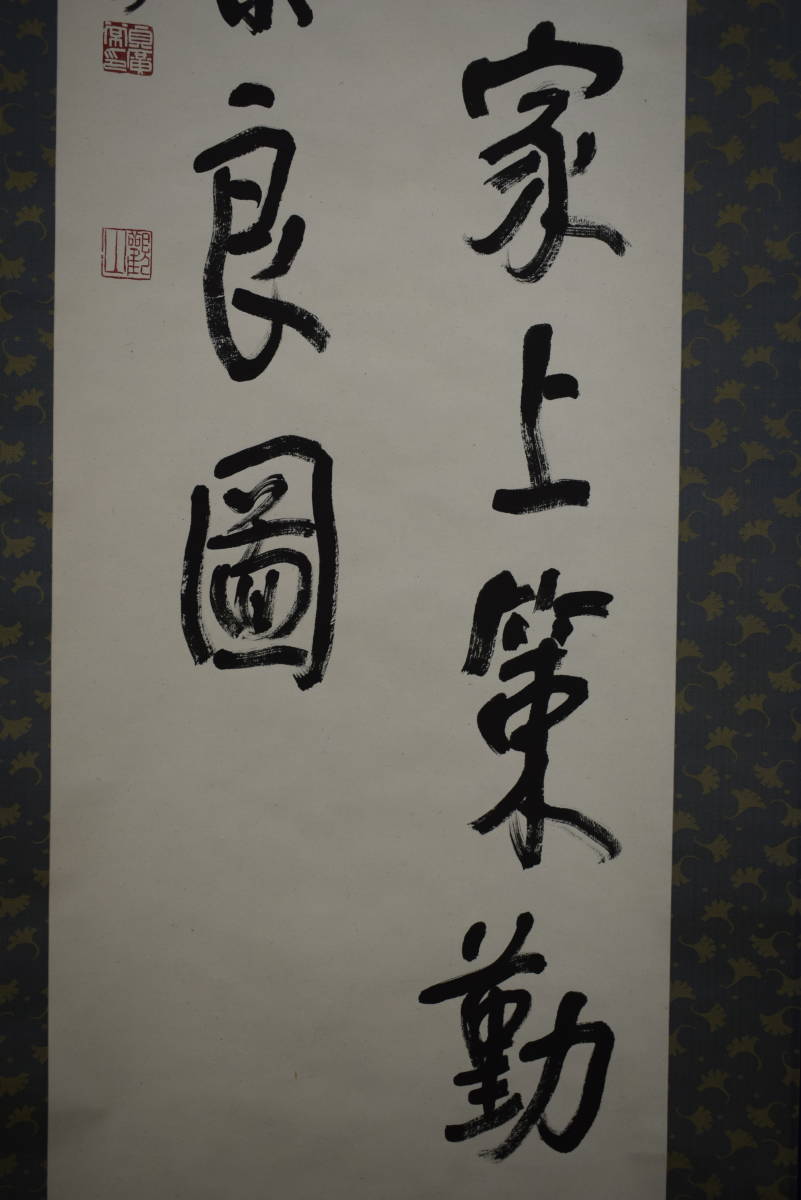 家上策勤
良圖